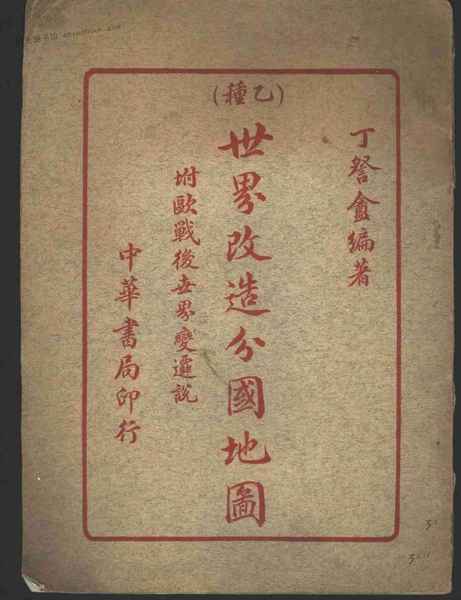 丁詧盦編著
(乙種)
世界改造分國地圖
坿歐戰後世界變遷說
中華書局印行